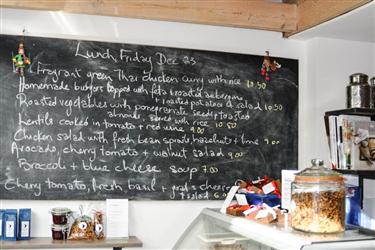 Lunch Friday Dec 23
Fragrant green Thai chicken curry with rice 10.50
Homemade burgers topped with feta & roasted aubergine
+ roasted potatoes & salad 10.50
Roasted vegetables with pomegranate seeds + toasted
almonds, served with rice 10.50
Lentils cooked in tomato + red wine 9.00
Chicken salad with fresh bean sprouts, hazelnuts + lime 9.00
Avocado, cherry tomato + walnut salad 9.00
Broccoli + blue cheese soup 7.00
Cherry tomato, fresh basil + goat's cheese
salad